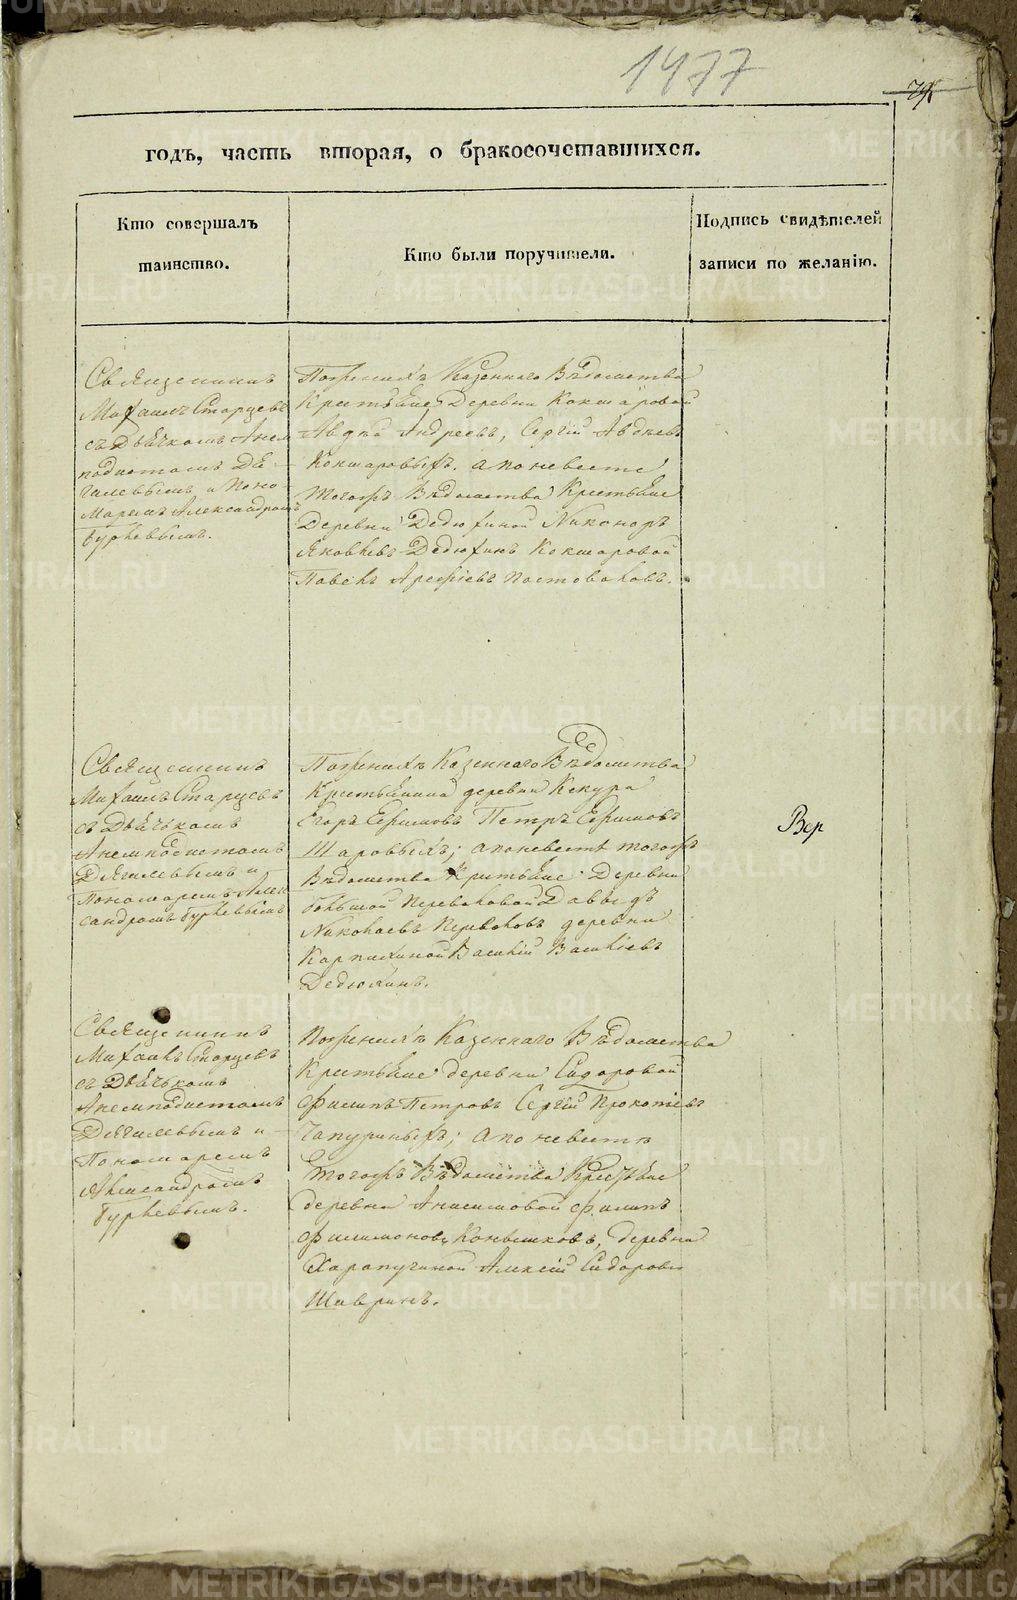 1477
годъ, часть вторая, о бракосочетавшихся.
Кто совершалъ
таинство.
Кто были поручители.
Подпись свидѣтелей
записи по желанію.
Священникъ
Михаилъ Старцевъ
съ Дьячкомъ Анем
подистомъ Дя-
гилевымъ и Поно-
маремъ Александромъ
Гурьевымъ.
Пожениxѣ Казеннаго Вѣдомства
Крестьяне Деревни Кокшаровой
Авдѣй Андреевъ, Сергѣй Авдѣевъ
Кокшаровыхъ. а по невестѣ
тогожъ Вѣдомства Крестьяне
Деревни Дедюхиной Никоноръ
Яковлевъ Дедюхинъ Кокшаровой
Павелъ Арефіевъ Постоваловъ.
Священникъ
Михаилъ Старцевъ
съ Дьячькомъ
Анемподистомъ
Дягилевымъ и
Пономаремъ Алек
сандромъ Гурьевымъ
Пожениxѣ Казеннаго Вѣдомства
Крестьянина деревни Кекура
Егоръ Ефимовъ Петръ Ефимовъ
Шаровыхъ; а по невестѣ тогожъ
Вѣдомства Крестьяне Деревни
большой Переваловой Давыдъ
Николаевъ Переваловъ деревни
Карпихиной Василій Василіевъ
Дедюхинъ.
Вер
Священникъ
Михаилъ Старцевъ
съ Дьячькомъ
Анемподистомъ
Дягилевымъ и
Пономаремъ
Александромъ
Гурьевымъ.
Пожениxѣ Казеннаго Вѣдомства
Крестьяне деревни Сидоровой
Филипъ Петровъ Сергѣй Прокопіевъ
Чапуриныхъ; а по невестѣ
тогожъ Вѣдомства Крестьяне
деревни Анисимовой Филипъ
Филимоновъ Коньшковъ, деревни
Харапугиной Алексѣй Сидоровъ
Шавринъ.
METRIKI.GASO-URAL.RU